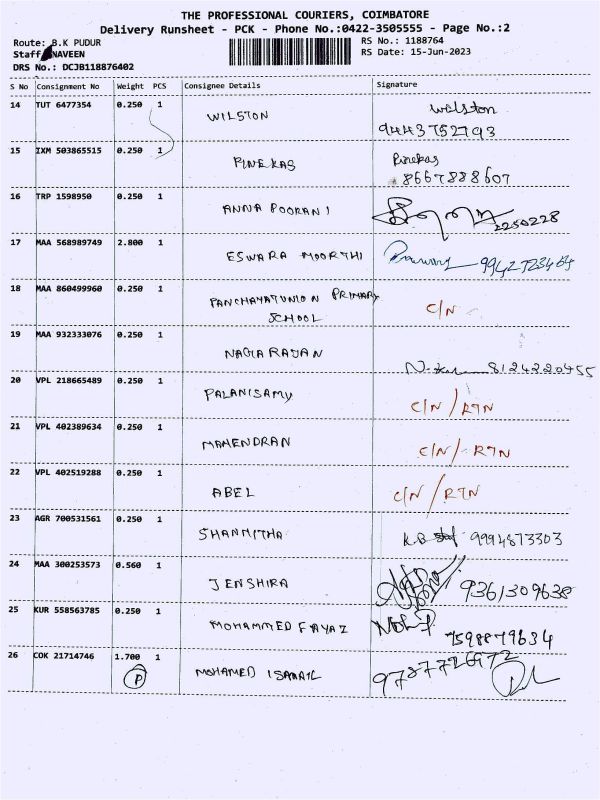 THE PROFESSIONAL COURIERS, COIMBATORE
Delivery Runsheet - PCK - Phone No.:0422-3505555 - Page No.:2
Route: B.K PUDUR
RS No.: 1188764
Staff: NAVEEN
RS Date: 15-Jun-2023
DRS No.: DCJB118876402
S No Consignment No Weight PCS Consignee Details Signature
14 TUT 6477354 0.250 1 WILSTON Wilston
9443752793
15 IXM 503865515 0.250 1 PINEKAS Pinekas
8667888607
16 TRP 1598950 0.250 1 ANNA POORANI 2250228
17 MAA 568989749 2.800 1 ESWARA MOORTHI 9942723464
18 MAA 860499960 0.250 1 PANCHAYATUNION PRIMARY C/N
SCHOOL
19 MAA 932333076 0.250 1 NAGARAJAN 8124220455
20 VPL 218665489 0.250 1 PALANISAMY C/N / RTN
21 VPL 402389634 0.250 1 MAHENDRAN C/N/- RTN
22 VPL 402519288 0.250 1 ABEL C/N / RTN
23 AGR 700531561 0.250 1 SHANMITHA K.B 9994873303
24 MAA 300253573 0.560 1 JENSHIRA 9361309638
25 KUR 558563785 0.250 1 MOHAMMED FAYAZ 7598879634
26 COK 21714746 1.700 1 MOHAMED ISMAIL
P